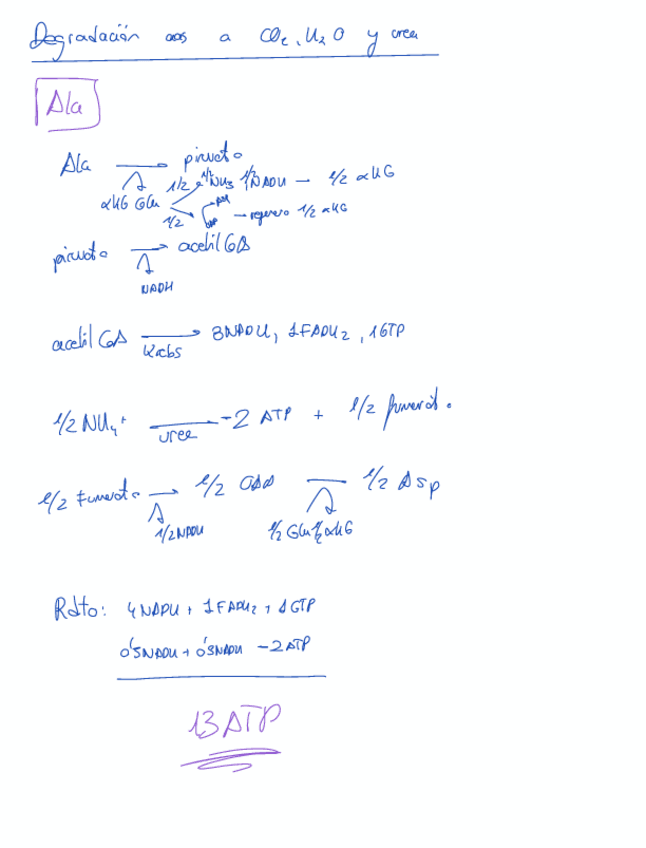 Degradación aas a CO2, H2O y urea
Ala
Ala → piruvato
αKG Glu 1/2 NH3 1/2 NADH — 1/2 αKG
1/2 — regenero 1/2 αKG
piruvato → acetil CoA
NADH
acetil CoA → 3NADH, 1FADH2, 1GTP
Krebs
1/2 NH4+ → -2 ATP + 1/2 fumarato
urea
1/2 Fumarato → 1/2 OAA → 1/2 Asp
1/2 NADH 1/2 Glu 1/2 αKG
Rdto: 4NADH + 1FADH2 + 1GTP
0'5NADH + 0'5NADH -2ATP
13 ATP